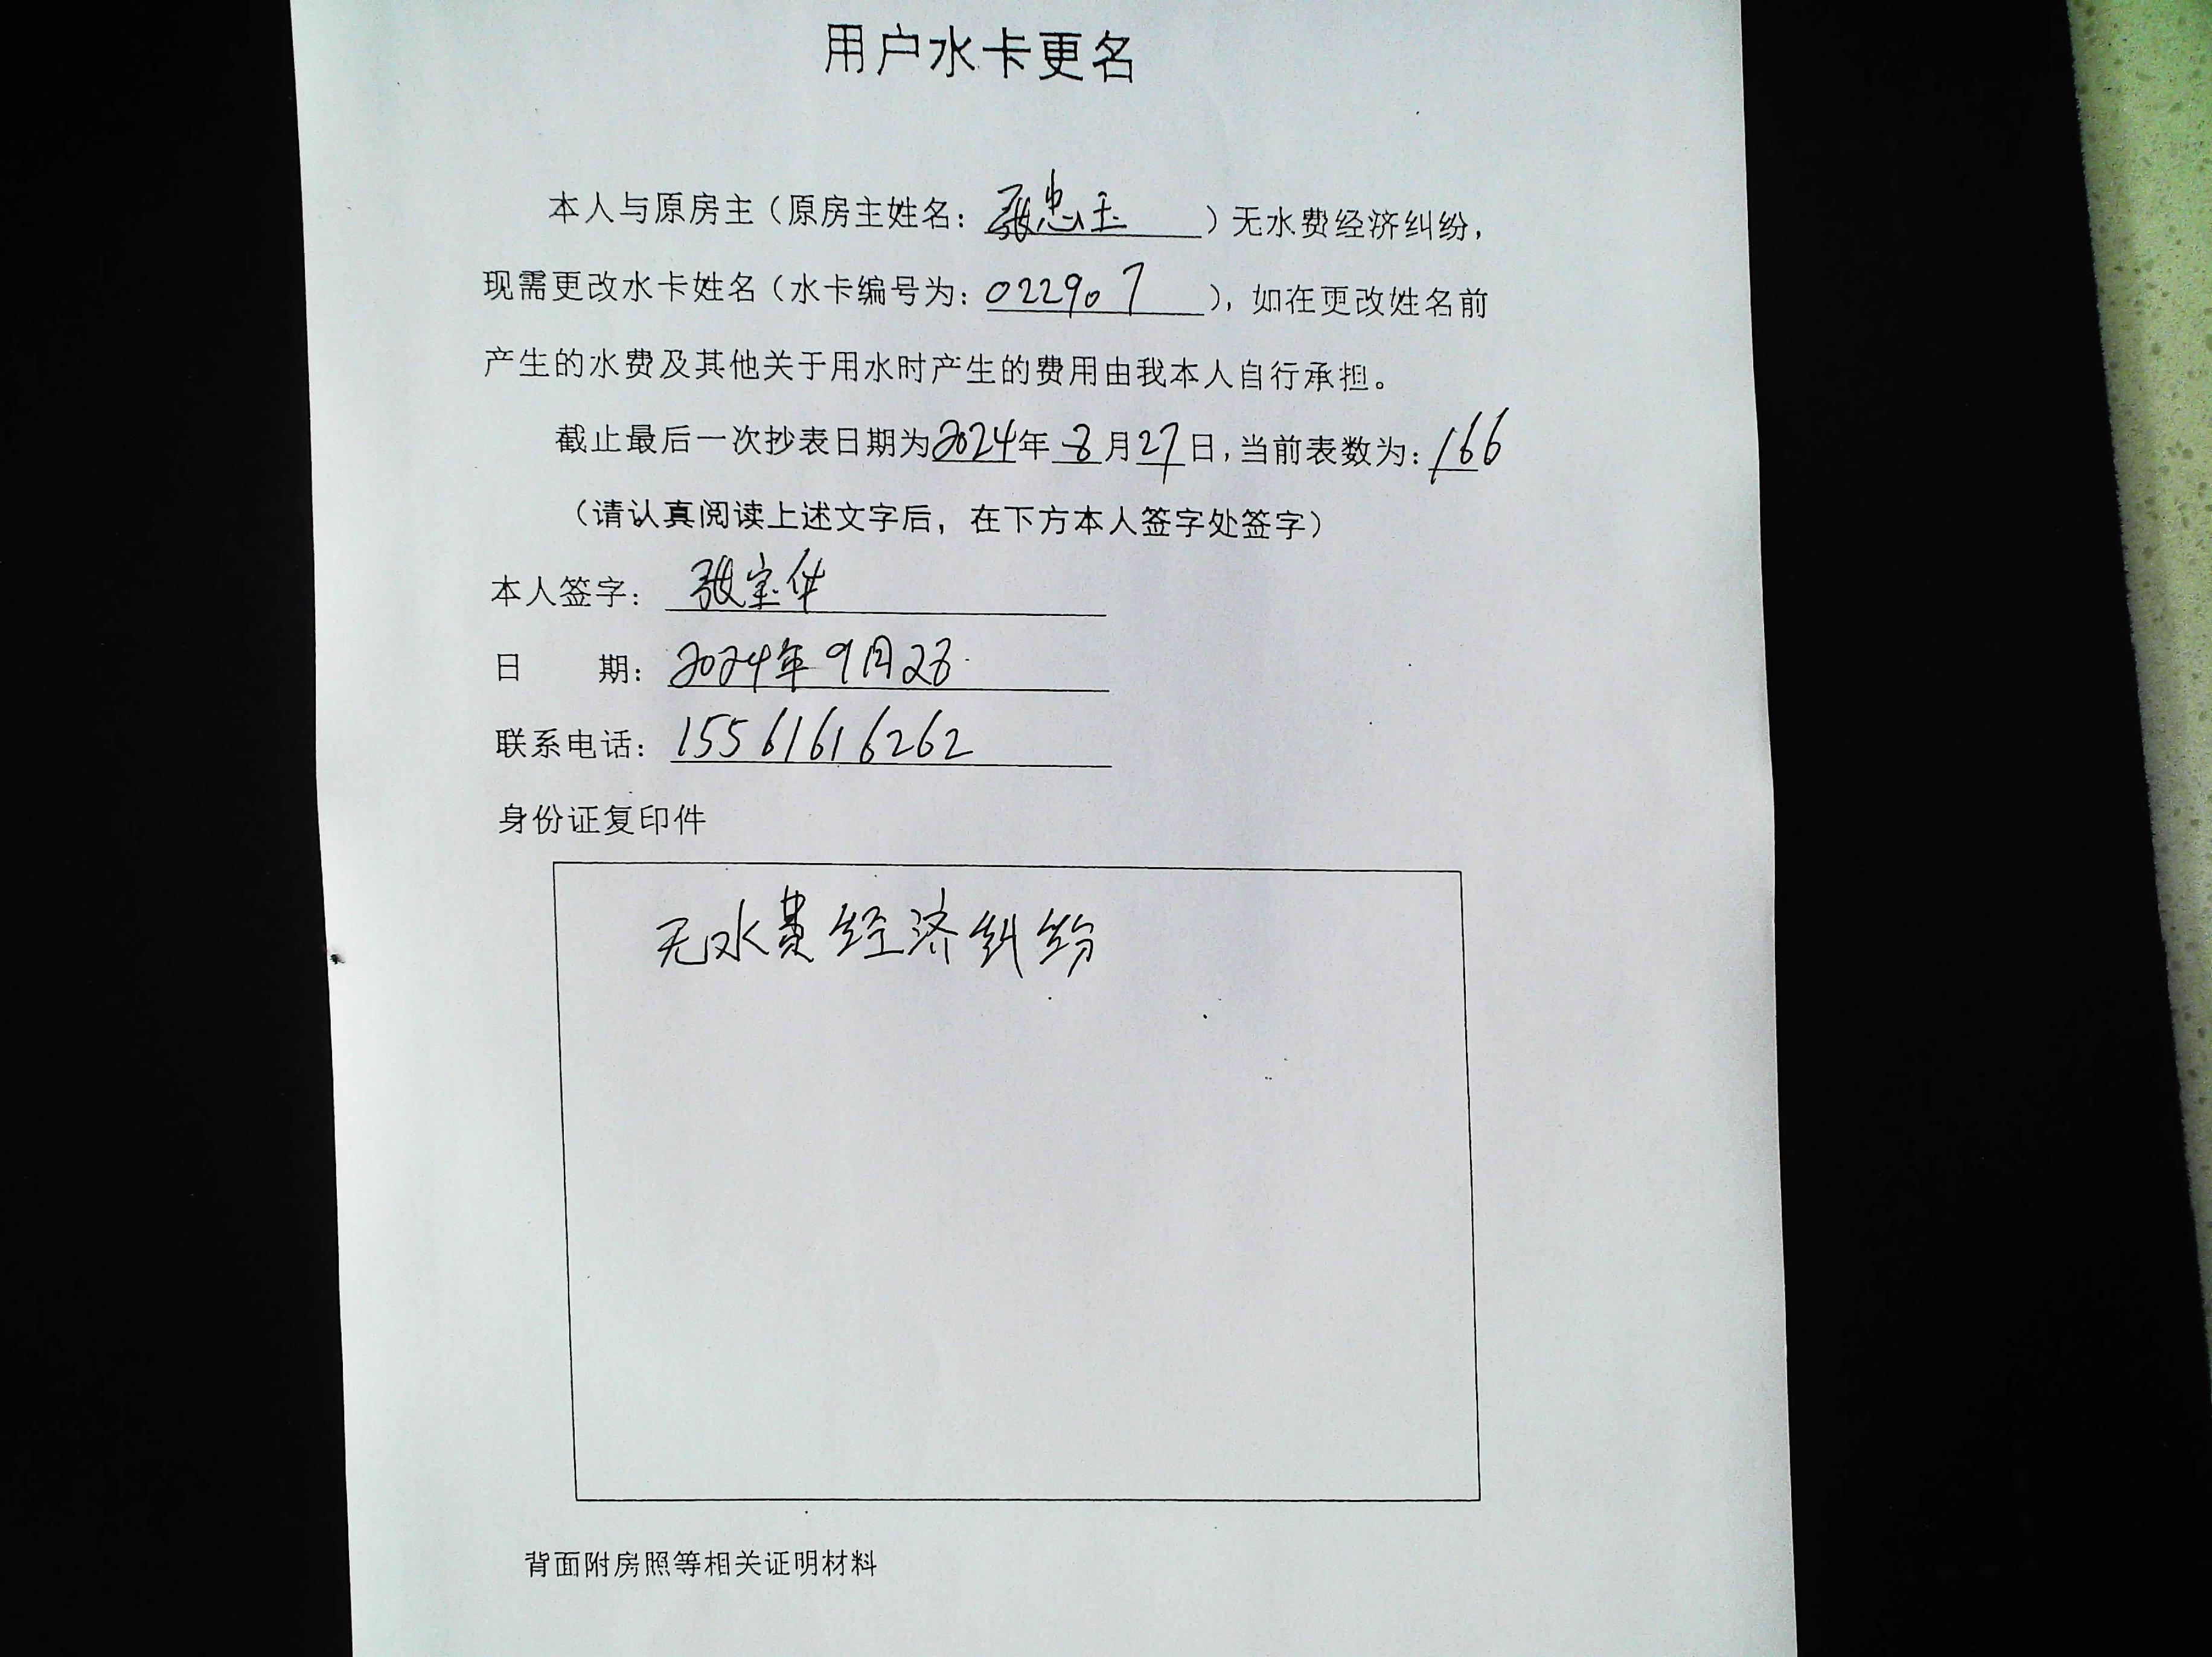 用户水卡更名
本人与原房主（原房主姓名：张忠玉）无水费经济纠纷，
现需更改水卡姓名（水卡编号为：022907），如在更改姓名前
产生的水费及其他关于用水时产生的费用由我本人自行承担。
截止最后一次抄表日期为2024年8月27日，当前表数为：166
（请认真阅读上述文字后，在下方本人签字处签字）
本人签字：张宝华
日 期：2024年9月23
联系电话：15561616262
身份证复印件
无水费经济纠纷
背面附房照等相关证明材料